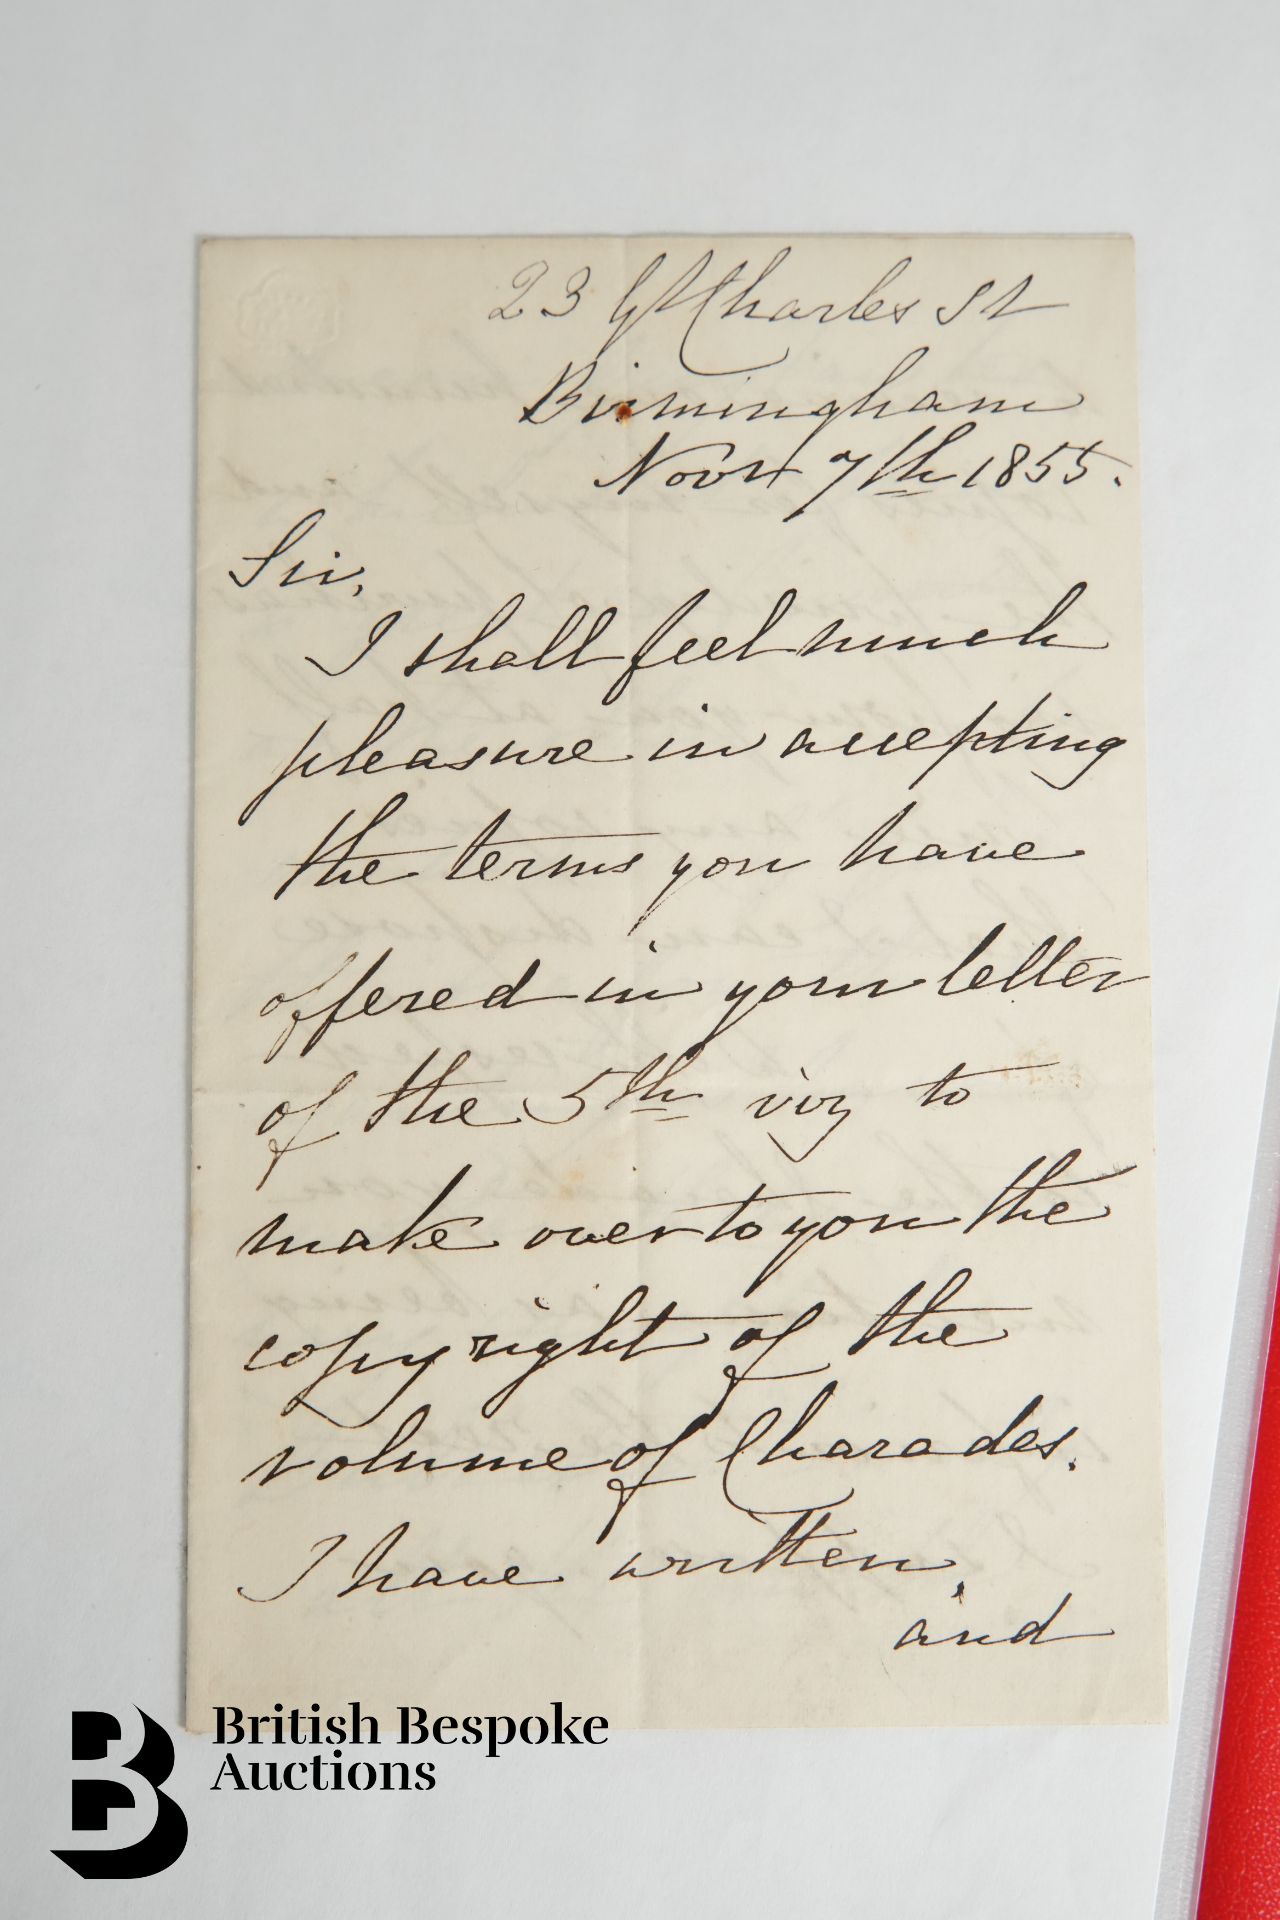 23 Gt Charles St
Birmingham
Novr 7th 1855.
Sir,
I shall feel much
pleasure in accepting
the terms you have
offered in your letter
of the 5th viz to
make over to you the
copyright of the
volume of Charades.
I have written,
and
British Bespoke
Auctions